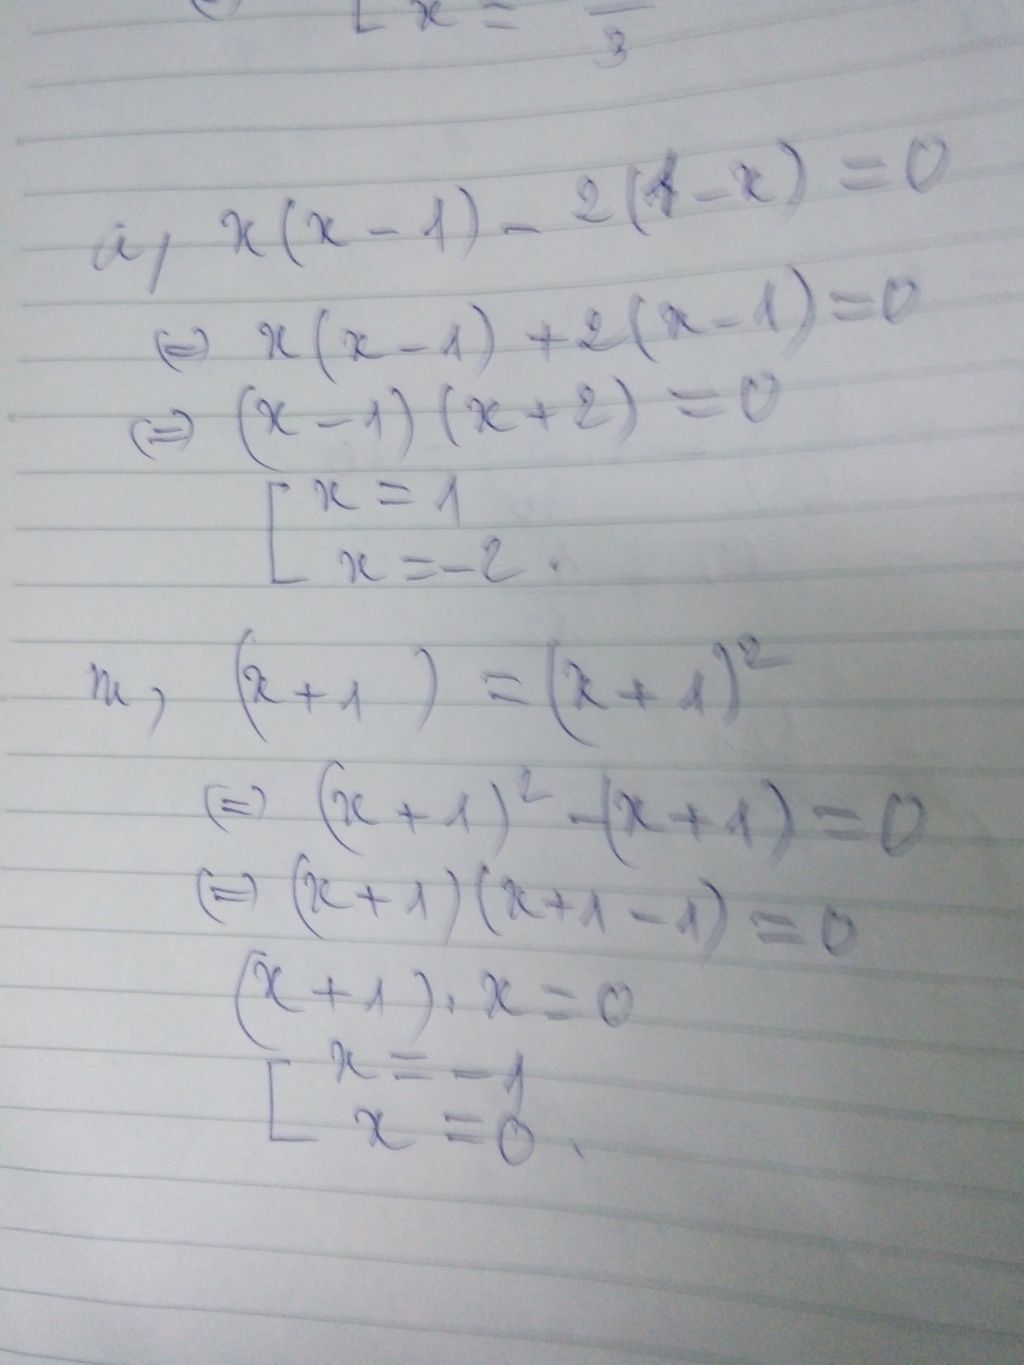 [ x = — 3
i, x(x - 1) - 2(1 - x) = 0
(=) x(x - 1) + 2(x - 1) = 0
(=) (x - 1)(x + 2) = 0
[ x = 1
x = -2.
m, (x + 1) = (x + 1)²
(=) (x + 1)² - (x + 1) = 0
(=) (x + 1)(x + 1 - 1) = 0
(x + 1). x = 0
[ x = -1
x = 0.